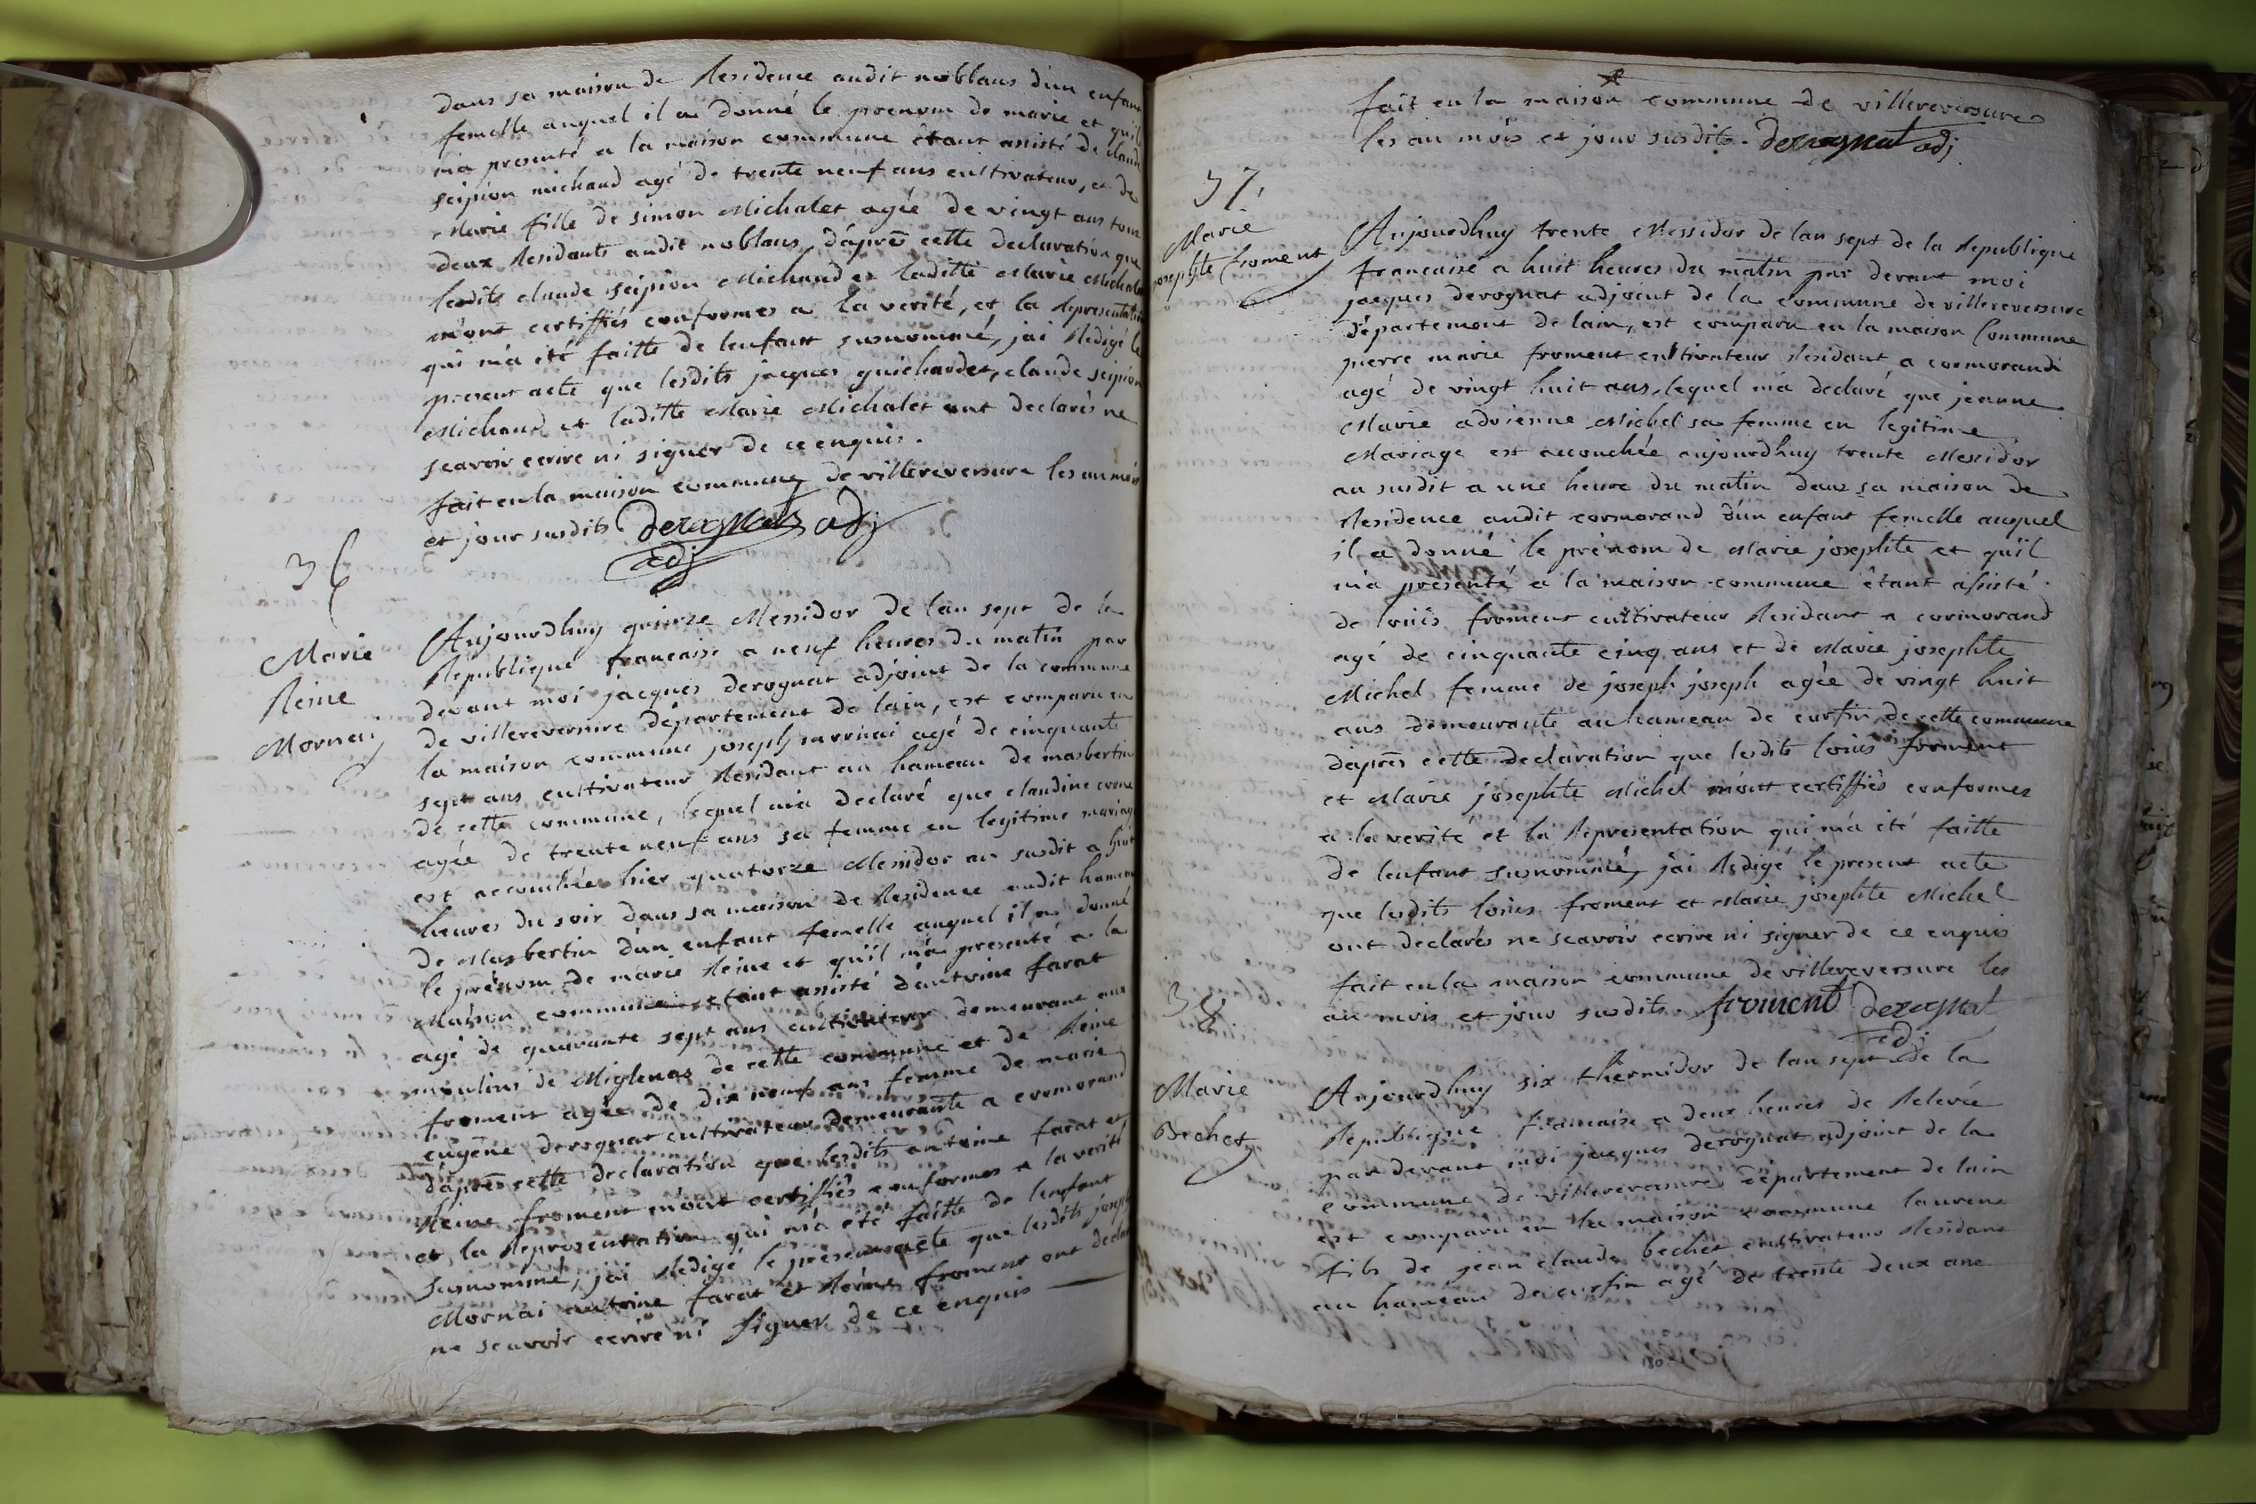 dans sa maison de Residence audit noblans d'un enfant
femelle auquel il a donné le prenom de marie et quil
m'a presenté a la maison commune étant assisté de claude
scipion michaud agé de trente neuf ans cultivateur, et de
Marie fille de simon Michalet agée de vingt ans tous
deux Residants audit noblans, d'aprés cette declaration que
lesdits claude scipion Michaud et laditte Marie Michalet
m'ont certiffiés conformes a la verité, et la Representation
qui m'a été faitte de lenfant susnommé, jai Redigé le
present acte que lesdits jacques guichardet, claude scipion
Michaud et laditte Marie Michalet ont declarés ne
scavoir ecrire ni signer de ce enquis.
fait en la maison commune de villereversure les an mois
et jour susdits Derognat adj
adj
36
Marie
Reine
Mornai
Aujourdhuy quinze Messidor de lan sept de la
Republique francaise a neuf heures du matin par
devant moi jacques derognat adjoint de la commune
de villereversure département de lain, est comparu en
la maison commune joseph mornai agé de cinquante
sept ans cultivateur Residant au hameau de masbertin
de cette commune, lequel m'a declaré que claudine
agée de trente neuf ans sa femme en legitime mariage
est accouchée hier quatorze Messidor an susdit a huit
heures du soir dans sa maison de Residence audit hameau
de Masbertin d'un enfant femelle auquel il a donné
le prénom de marie Reine et quil m'a presenté a la
Maison commune étant assisté d'antoine farat
agé de quarante sept ans cultivateur demeurant aux
moulins de Miglenas de cette commune et de Reine
froment agée de dix neuf ans femme de marie
eugêne derognat cultivateur demeurante a cormorand
d'aprés cette declaration que lesdits antoine farat et
Reine froment m'ont certiffiés conformes a la verité
et la Representation qui m'a été faitte de lenfant
susnommé, jai Redigé le présent acte que lesdits joseph
Mornai antoine farat et Reine froment ont declarés
ne scavoir ecrire ni signer de ce enquis
fait en la maison commune de villereversure
les an mois et jour susdits. derognat adj
37.
Marie
josephte froment
Aujourdhuy trente Messidor de lan sept de la Republique
francaise a huit heures du matin par devant moi
jacques derognat adjoint de la commune de villereversure
département de lain, est comparu en la maison Commune
pierre marie froment cultivateur Residant a cormorand
agé de vingt huit ans, lequel m'a declaré que jeanne
Marie adrienne Michel sa femme en legitime
Mariage est accouchée aujourdhuy trente Messidor
an susdit a une heure du matin dans sa maison de
Residence audit cormorand d'un enfant femelle auquel
il a donné le prénom de Marie josephte et quil
m'a presenté a la maison commune étant assisté
de loüis froment cultivateur Residant a cormorand
agé de cinquante cinq ans et de Marie josephte
Michel femme de joseph joseph agée de vingt huit
ans demeurante au hameau de curfin de cette commune
d'aprés cette declaration que lesdits loüis froment
et Marie josephte Michel m'ont certiffiés conformes
a la verité et la Representation qui m'a été faitte
de lenfant susnommé, jai Redigé le present acte
que lesdits loüis froment et Marie josephte Michel
ont declarés ne scavoir ecrire ni signer de ce enquis
fait en la maison commune de villereversure les
an mois et jour susdits froment Derognat
adj
38
Marie
Bechet
Aujourdhuy six thermidor de lan sept de la
Republique francaise a deux heures de Relevée
par devant moi jacques derognat adjoint de la
commune de villereversure département de lain
est comparu en la maison commune laurent
fils de jean claude bechet cultivateur Residant
au hameau de curfin agé de trente deux ans
180